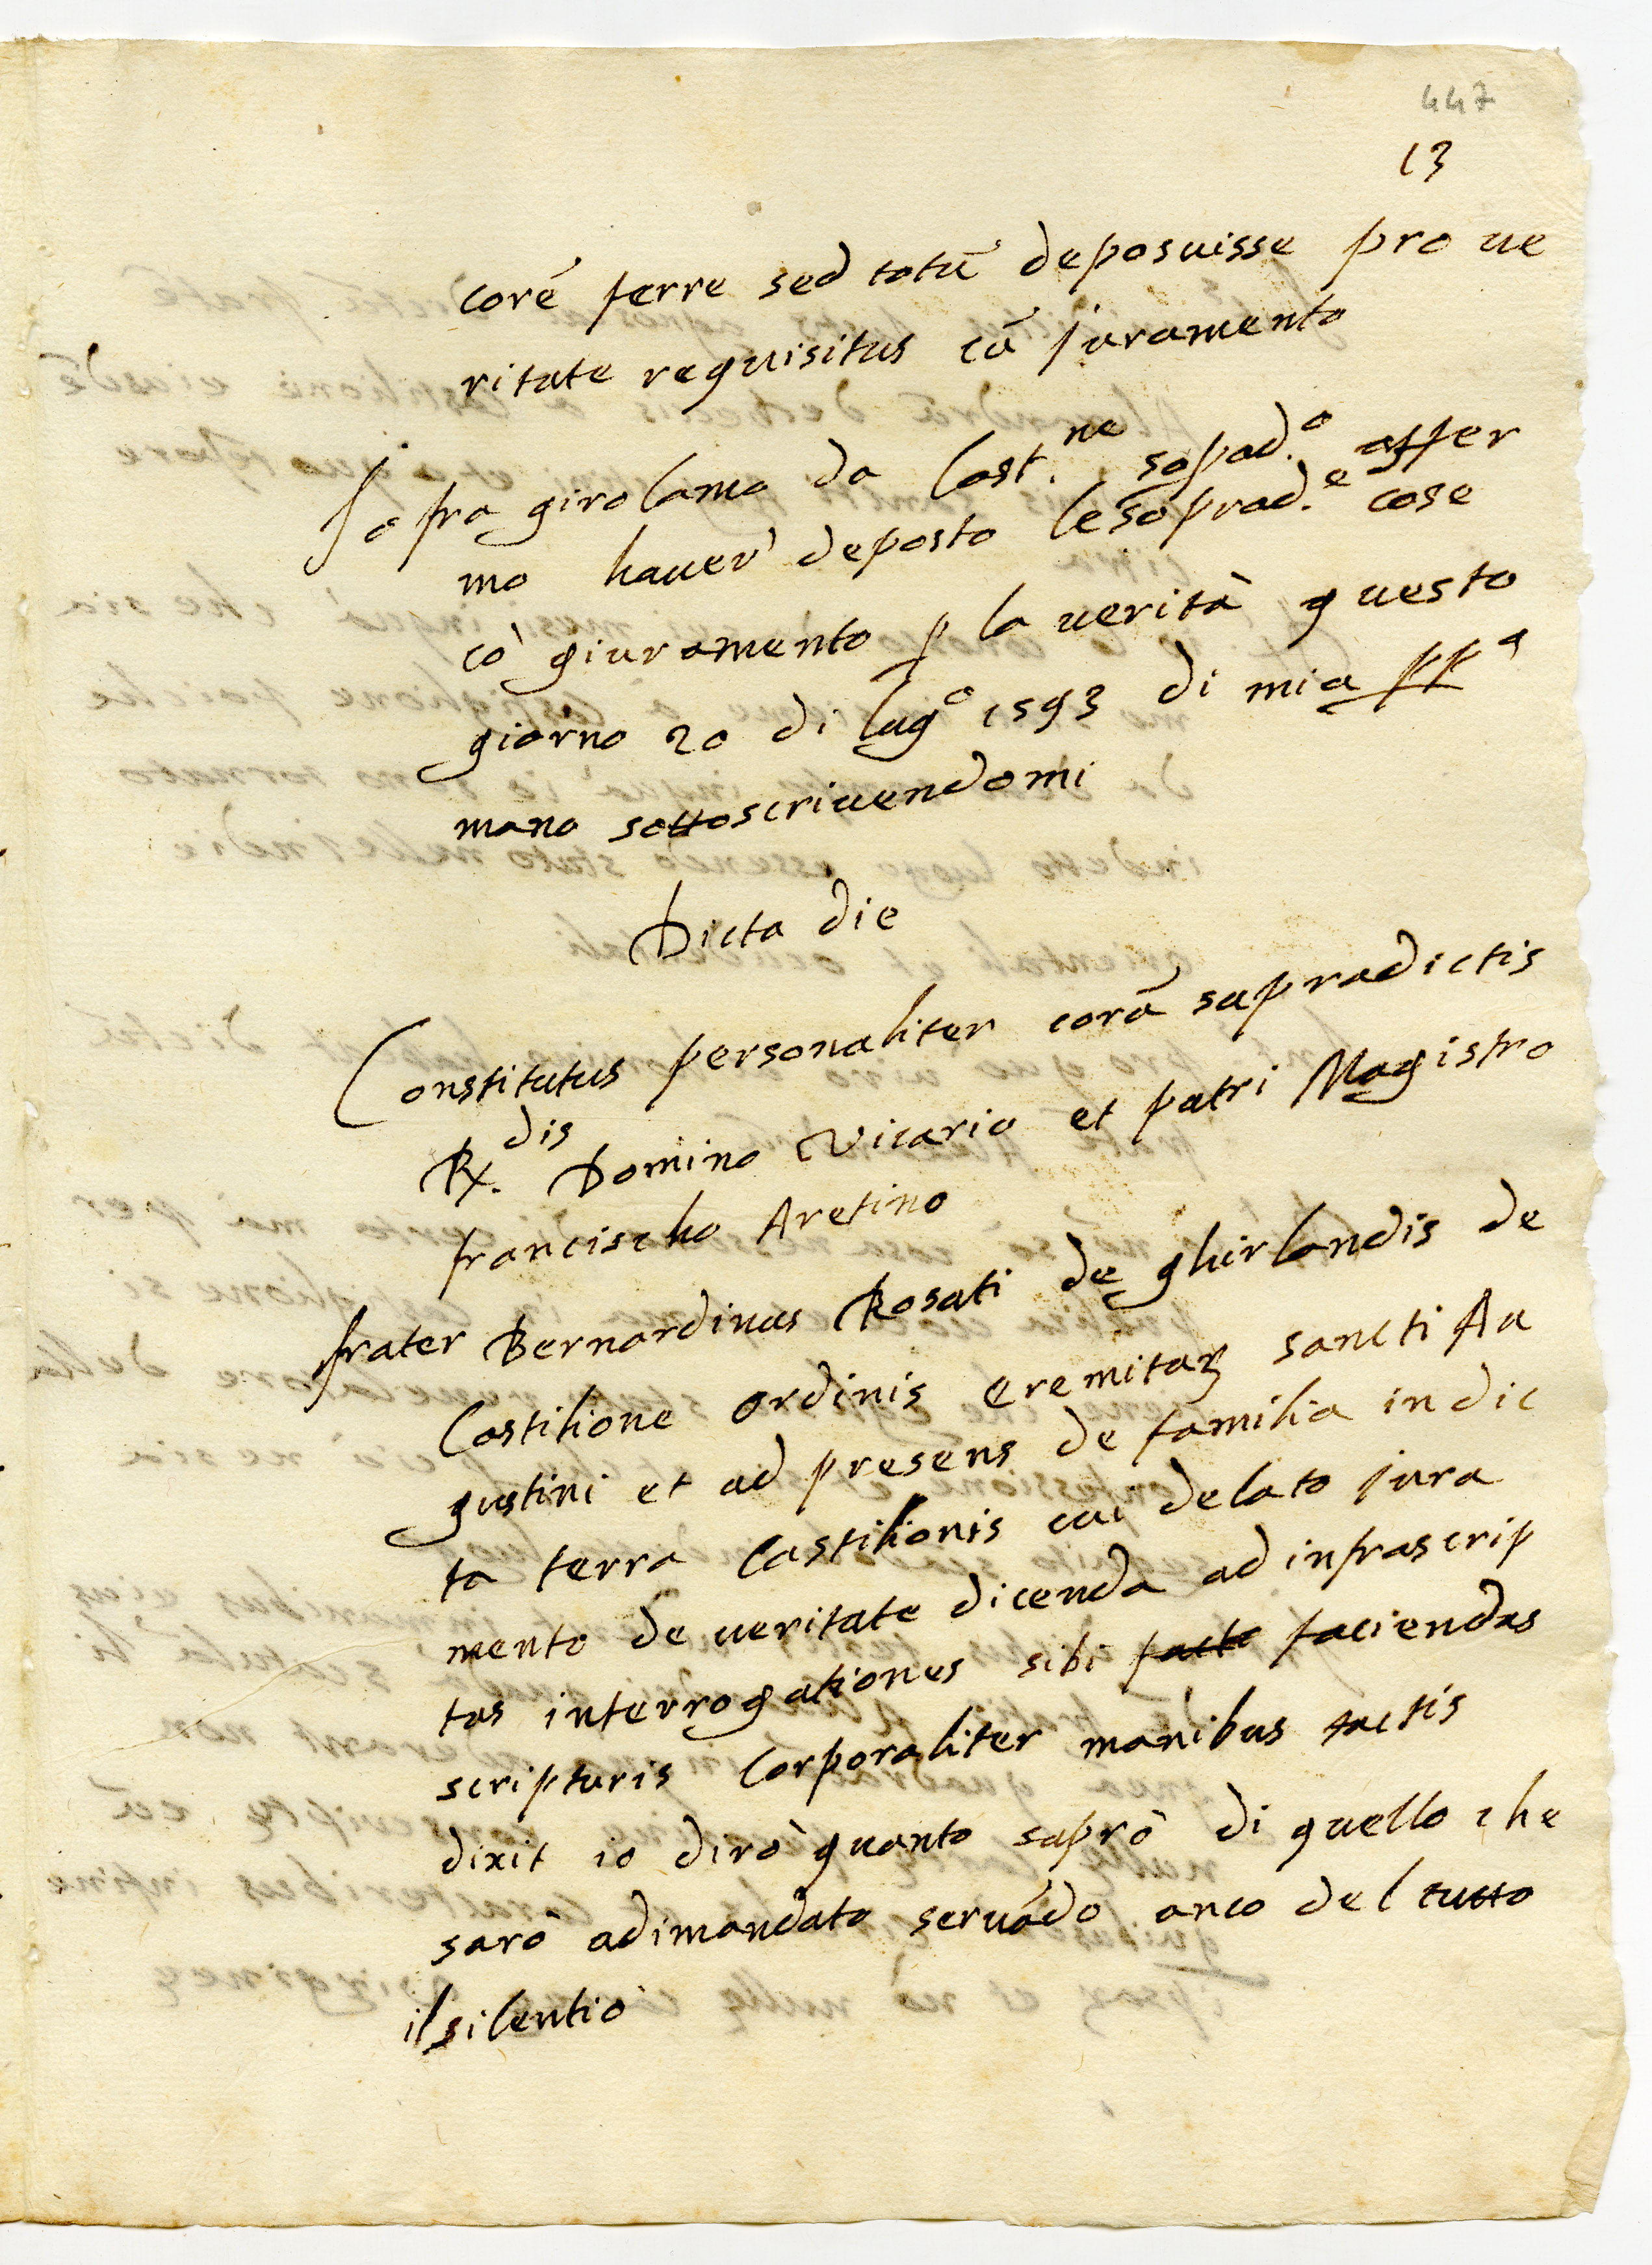 447
13
corē ferre sed totū deposuisse pro ue
ritate requisitus cū juramento
Io fra girolamo da Cast.ne sopad.o affer
mo haver deposto le soprad.e cose
cō giuramento p la verità questo
giorno 20 di lug.o 1593 di mia pp.a
mano sottoscrivendomi
Dicta die
Constitutus personaliter corā supradictis
R.dis Domino Vicario et patri Magistro
francischo Aretino
frater Bernardinus Rosati de ghirlandis de
Castilione ordinis eremitaꝝ sancti Au
gustini et ad presens de familia in dic
ta terra Castilionis cui delato jura
mento de veritate dicenda ad infrascrip
tas interrogationes sibi faciendas
scripturis corporaliter manibus tactis
dixit io dirò quanto saprò di quello che
sarò adimandato servādo anco del tutto
il silentio